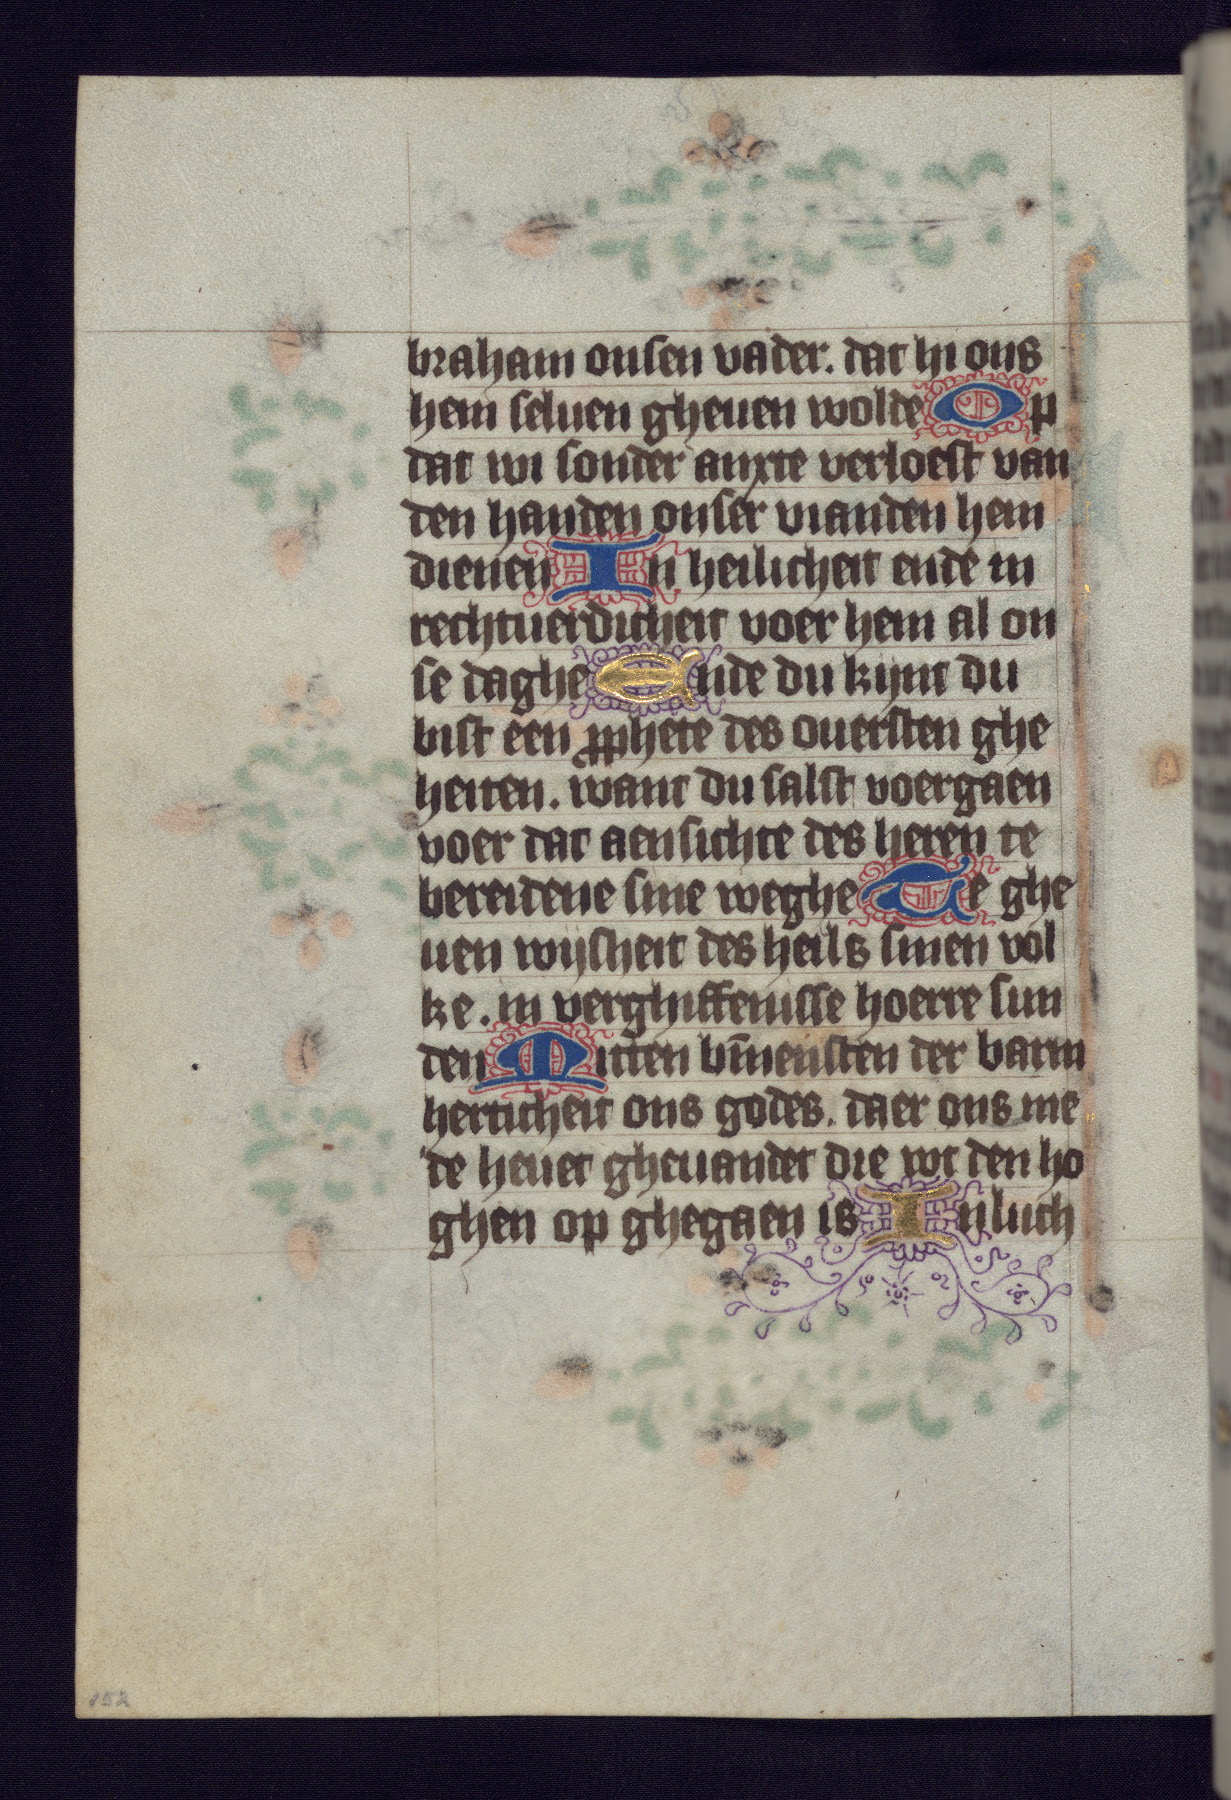 braham onsen vader. dat hi ons
hem seluen gheuen wolde Op
dat wi sonder anxte verloest van
den handen onser vianden hem
dienen In heilicheit ende in
rechtuerdicheit voer hem al on
se daghe Ende du kijnt du
bist een ꝓphete des ouersten ghe
heiten. want du salst voergaen
voer dat aensichte des heren te
bereidene sine weghe Te ghe
uen wijsheit des heils sinen vol
ke. in verghiffenisse hoerre sun
den Mitten bīnensten der barm
herticheit ons godes. daer ons me
de heuet gheuandet die wt den ho
ghen op ghegaen is Inluch
152